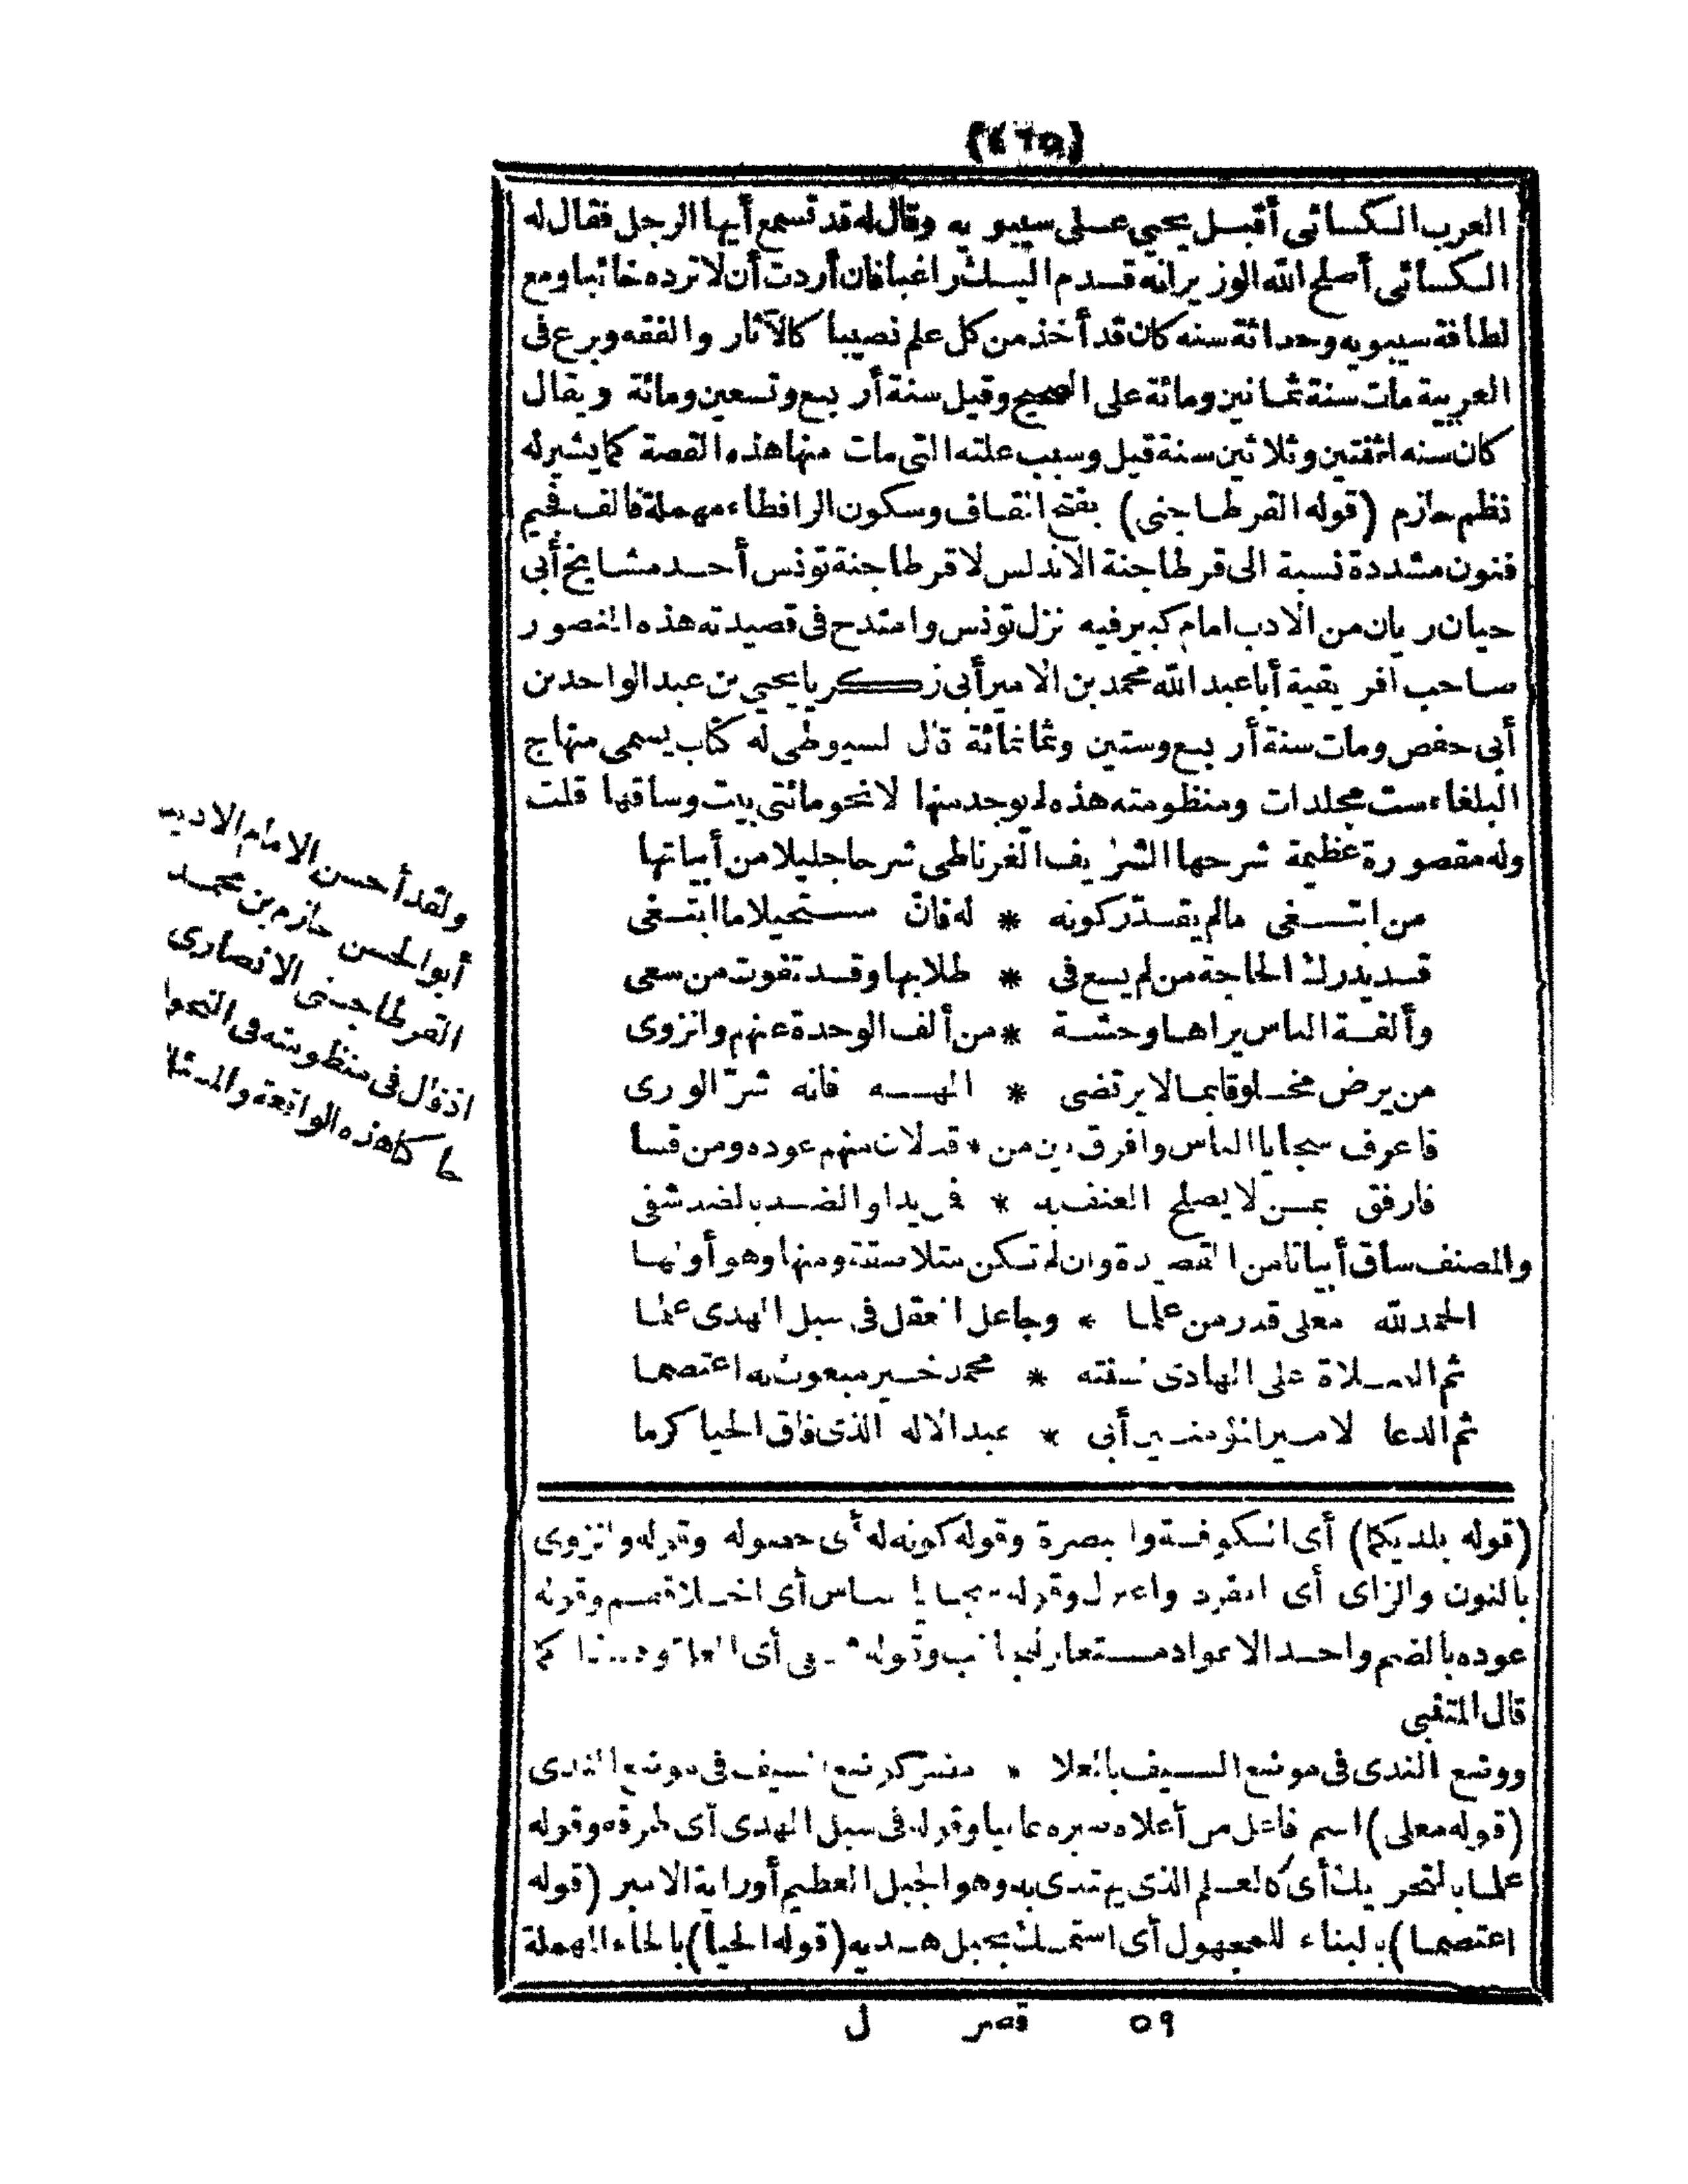 (٤٦٥)
العرب الكسائى أقبل يحيى على سيبويه وقال له قد تسمع أيها الرجل فقال له
الكسائى أصلح الله الوزير انه قدم اليك راغبا فان أردت أن لا ترده خائبا ومع
لطافة سيبويه وحداثة سنه كان قد أخذ من كل علم نصيبا كالآثار والفقه وبرع فى
العربية مات سنة ثمانين ومائة على الصحيح وقيل سنة أربع وتسعين ومائة ويقال
كان سنه اثنتين وثلاثين سنة قيل وسبب علته التى مات منها هذه القصة كما يشير له
نظم حازم (قوله القرطاجنى) بفتح القاف وسكون الرا فطاء مهملة فالف فجيم
فنون مشددة نسبة الى قرطاجنة الاندلس لا قرطاجنة تونس أحد مشايخ أبى
حيان ريان من الادب امام كبير فيه نزل تونس وامتدح فى قصيدته هذه المنصور
صاحب افريقية أبا عبد الله محمد بن الامير أبى زكريا يحيى بن عبد الواحد بن
أبى حفص ومات سنة أربع وستين وثمانمائة قال لسيوطى له كتاب يسمى منهاج
البلغاء ست مجلدات ومنظومته هذه لم يوجد منها لا نحو مائتى بيت وساقها قلت
وله مقصورة عظيمة شرحها الشريف الغرناطى شرحا جليلا من أبياتها
من ابتغى مالم يقدر كونه * له فان مستحيلا ما ابتغى
قد يدرك الحاجة من لم يسع فى * طلابها وقد تفوت من سعى
وألفة الناس يراها وحشة * من ألف الوحدة عنهم وانزوى
من يرض مخلوقا بما لا يرتضى * الهه فانه شر الورى
فاعرف سجايا الناس وافرق بين من * قد لان منهم عوده ومن قسا
فارفق بمن لا يصلح العنف به * والضد بالضد شفى
والمصنف ساق أبياتا من القصيدة وان لم تكن متلاصقة ومنها وهو أولها
الحمد لله معلى قدر من علما * وجاعل العقل فى سبل الهدى علما
ثم الصلاة على الهادى لسنته * محمد خير مبعوث به اعتصما
ثم الدعا لامير المؤمنين أبى * عبد الاله الذى فاق الحيا كرما
(قوله بلديكما) أى الكوفة والبصرة وقوله كونه له أى حصوله وقوله وانزوى
بالنون والزاى أى انفرد واعتزل وقوله سجايا الناس أى اخلاقهم وقوله
عوده بالضم واحد الاعواد مستعار للجانب وقوله أى كما
قال المتنبى
ووضع الندى فى موضع السيف بالعلا * مضر كوضع السيف فى موضع الندى
(قوله معلى) اسم فاعل من أعلاه صيره عاليا وقوله فى سبل الهدى أى طرقه وقوله
علما بالتحريك أى كالعلم الذى يهتدى به وهو الجبل العظيم أو راية الامير (قوله
اعتصما) بالبناء للمجهول أى استمسك بحبل هديه (قوله الحيا) بالحاء المهملة
٥٩ قصر ل
ولقد أحسن الامام الاديب
أبو الحسن حازم بن محمد
القرطاجنى الانصارى
اذ قال فى منظومته فى النحو
حا كا هذه الواقعة والمسئلة